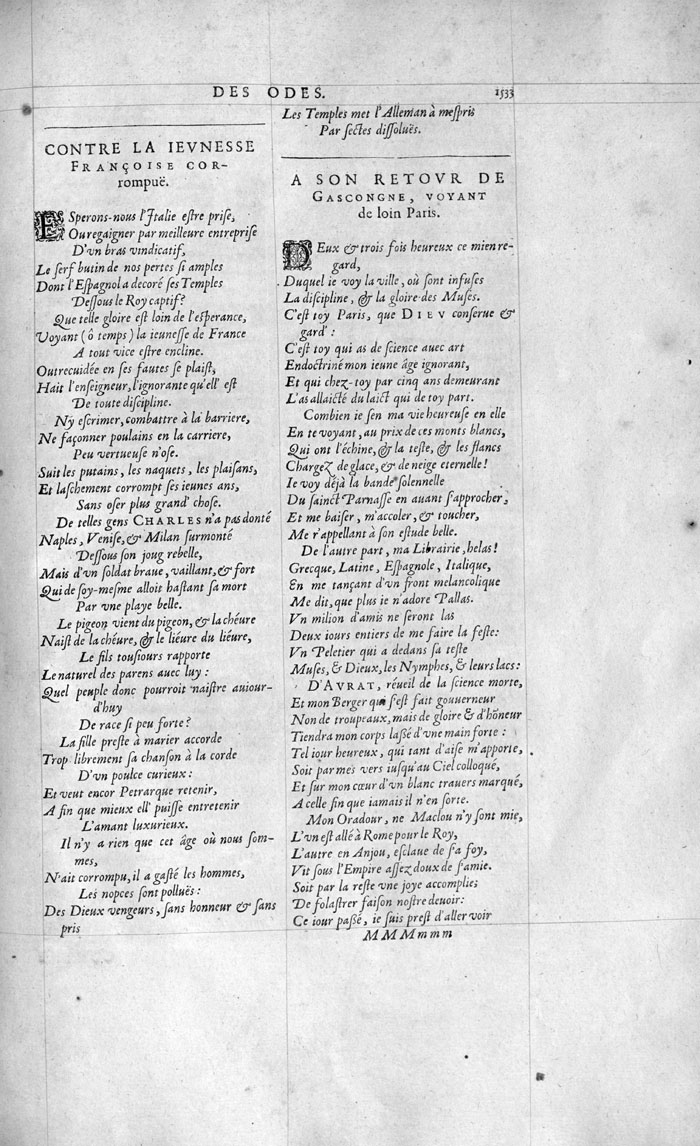 DES ODES.
1533
CONTRE LA IEVNESSE
FRANÇOISE COR-
rompuë.
ESperons-nous l'Italie estre prise,
Ou regaigner par meilleure entreprise
D'vn bras vindicatif,
Le serf butin de nos pertes si amples
Dont l'Espagnol a decoré ses Temples
Dessous le Roy captif?
Que telle gloire est loin de l'esperance,
Voyant (ô temps) la ieunesse de France
A tout vice estre encline.
Outrecuidée en ses fautes se plaist,
Hait l'enseigneur, l'ignorante qu'ell' est
De toute discipline.
N'y escrimer, combattre à la barriere,
Ne façonner poulains en la carriere,
Peu vertueuse n'ose.
Suit les putains, les naquets, les plaisans,
Et laschement corrompt ses ieunes ans,
Sans oser plus grand' chose.
De telles gens CHARLES n'a pas donté
Naples, Venise, & Milan surmonté
Dessous son joug rebelle,
Mais d'vn soldat braue, vaillant, & fort
Qui de soy-mesme alloit hastant sa mort
Par vne playe belle.
Le pigeon vient du pigeon, & la chéure
Naist de la chéure, & le liéure du liéure,
Le fils tousiours rapporte
Le naturel des parens auec luy :
Quel peuple donc pourroit naistre auiour-
d'huy
De race si peu forte?
La fille preste à marier accorde
Trop librement sa chanson à la corde
D'vn poulce curieux :
Et veut encor Petrarque retenir,
A fin que mieux ell' puisse entretenir
L'amant luxurieux.
Il n'y a rien que cet âge où nous som-
mes,
N'ait corrompu, il a gasté les hommes,
Les nopces sont polluës :
Des Dieux vengeurs, sans honneur & sans
pris
Les Temples met l'Alleman à mespris
Par sectes dissoluës.
A SON RETOVR DE
GASCONGNE, VOYANT
de loin Paris.
DEux & trois fois heureux ce mien re-
gard,
Duquel ie voy la ville, où sont infuses
La discipline, & la gloire des Muses.
C'est toy Paris, que DIEV conserue &
gard' :
C'est toy qui as de science auec art
Endoctriné mon ieune âge ignorant,
Et qui chez-toy par cinq ans demeurant
L'as allaicté du laict qui de toy part.
Combien ie sen ma vie heureuse en elle
En te voyant, au prix de ces monts blancs,
Qui ont l'échine, & la teste, & les flancs
Chargez de glace, & de neige eternelle!
Ie voy déjà la bande solennelle
Du sainct Parnasse en auant s'approcher,
Et me baiser, m'accoler, & toucher,
Me r'appellant à son estude belle.
De l'autre part, ma Librairie, helas!
Grecque, Latine, Espagnole, Italique,
En me tançant d'vn front melancolique
Me dit, que plus ie n'adore Pallas.
Vn milion d'amis ne seront las
Deux iours entiers de me faire la feste:
Vn Peletier qui a dedans sa teste
Muses, & Dieux, les Nymphes, & leurs lacs:
D'AVRAT, réueil de la science morte,
Et mon Berger qui s'est fait gouuerneur
Non de troupeaux, mais de gloire & d'hõneur
Tiendra mon corps lassé d'vne main forte :
Tel iour heureux, qui tant d'aise m'apporte,
Soit par mes vers iusqu'au Ciel colloqué,
Et sur mon cœur d'vn blanc trauers marqué,
A celle fin que iamais il n'en sorte.
Mon Oradour, ne Maclou n'y sont mie,
L'vn est allé à Rome pour le Roy,
L'autre en Anjou, esclaue de sa foy,
Vit sous l'Empire assez doux de s'amie.
Soit par la reste vne joye accomplie:
De folastrer faison nostre deuoir:
Ce iour passé, ie suis prest d'aller voir
MMMmmm